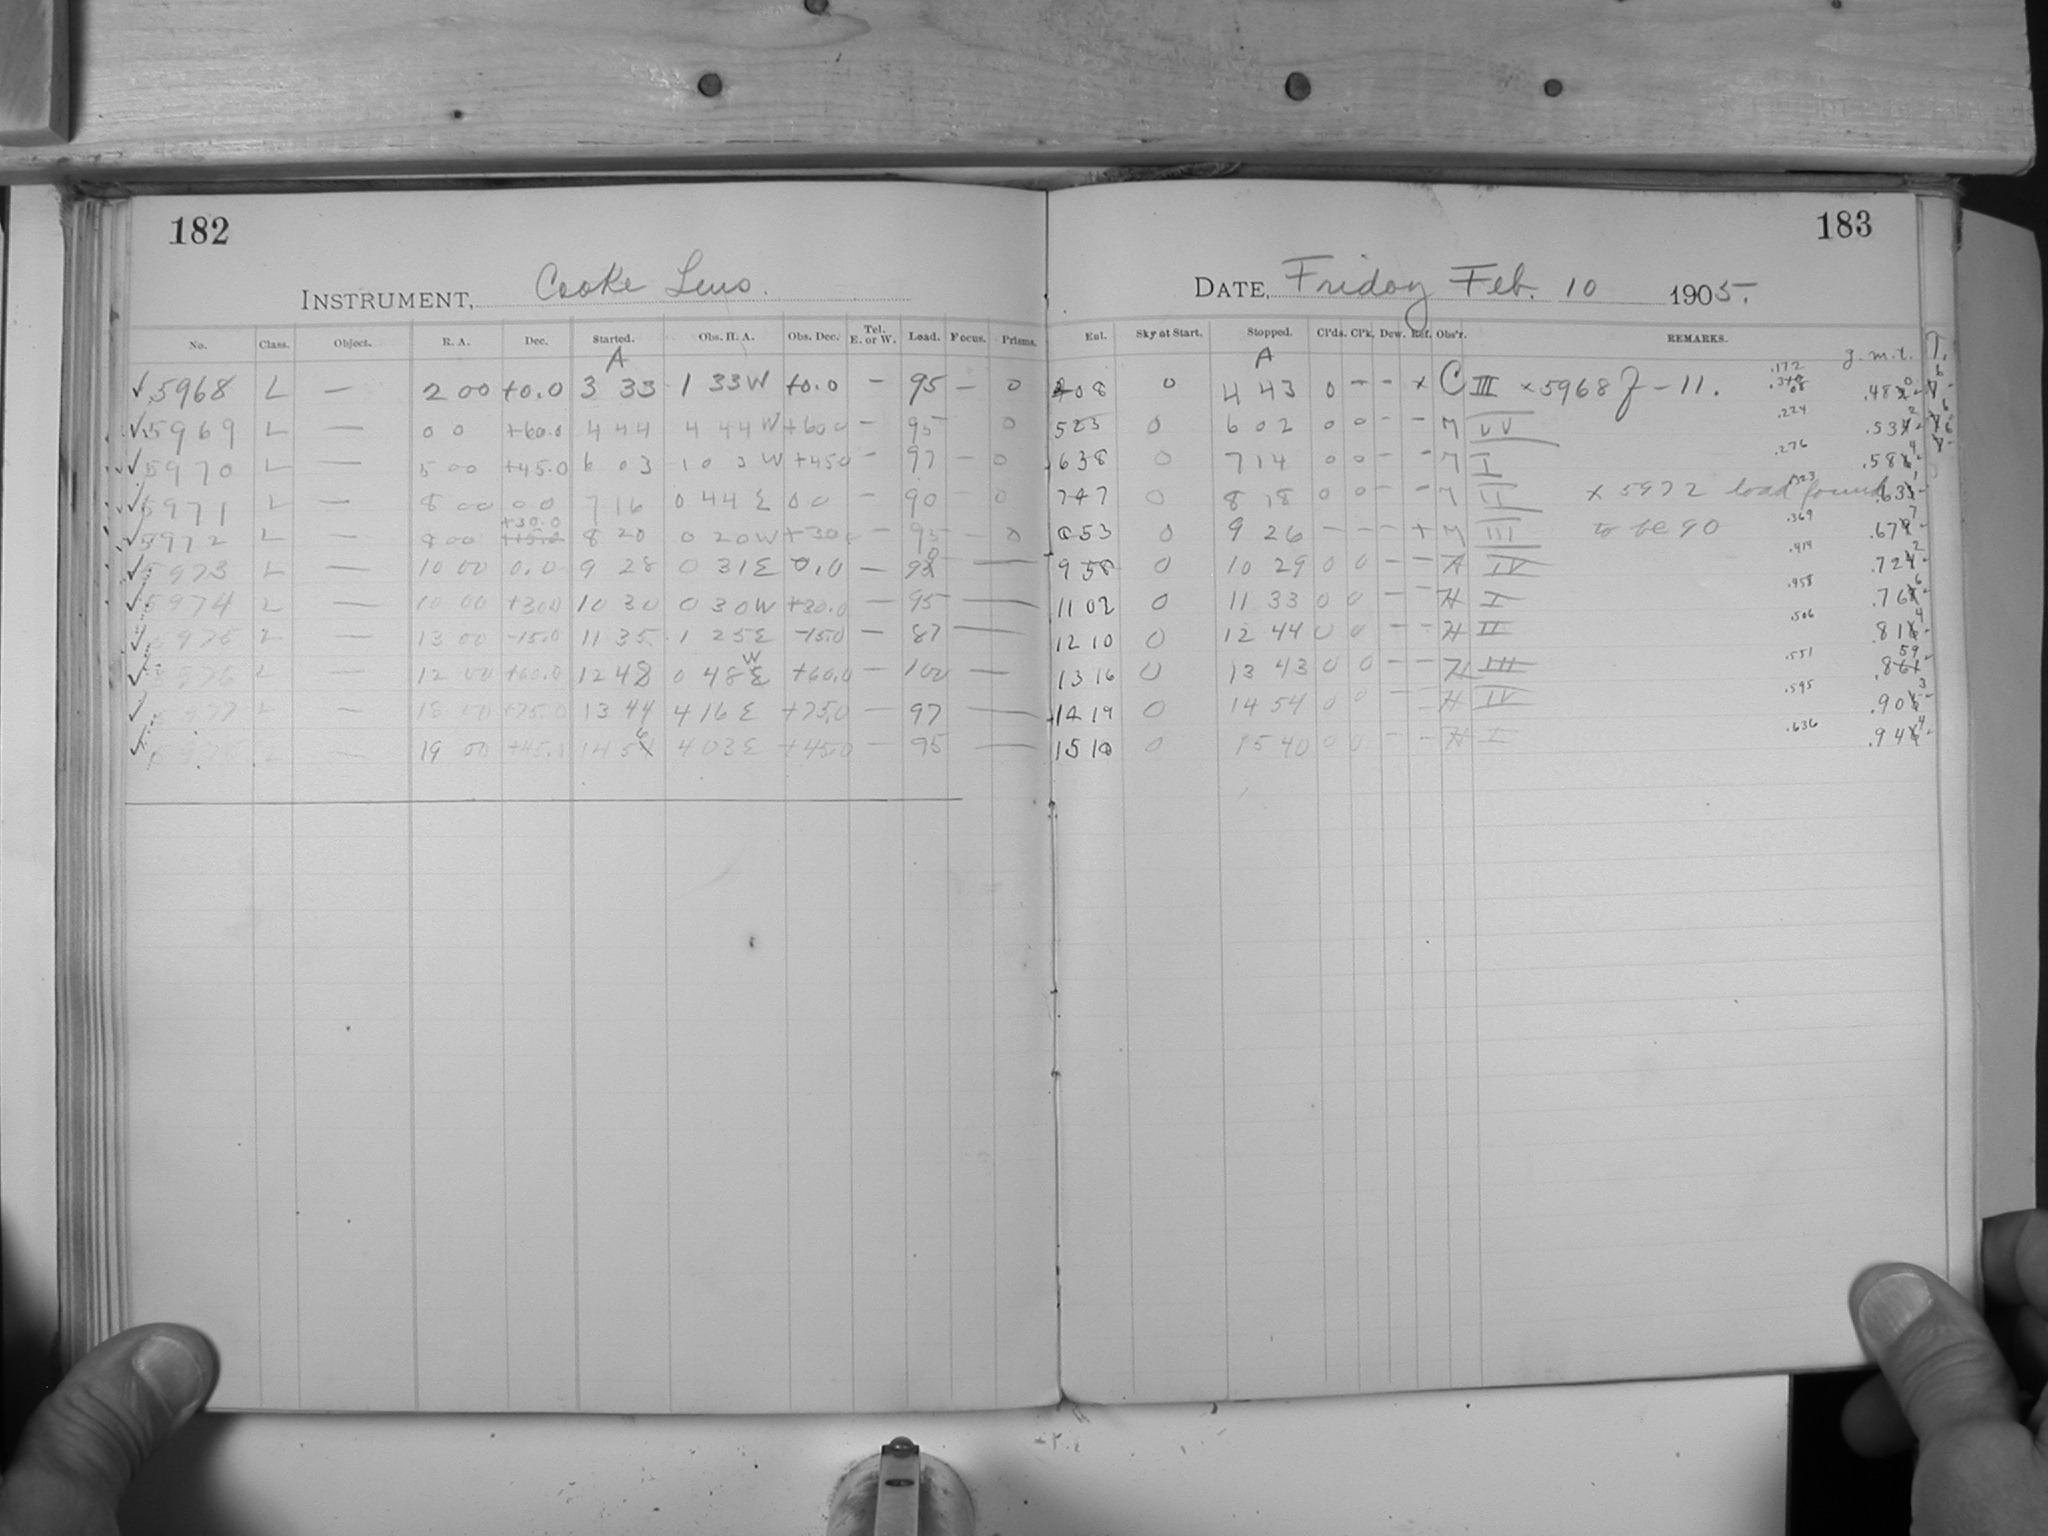 182
INSTRUMENT, Cooke Lens.
No. Class. Object. R. A. Dec. Started. Obs. H. A. Obs. Dec. Tel. E. or W. Load. Focus. Prisms.
A
✓ 5968 L — 2 00 +0.0 3 33 1 33 W +0.0 — 95 — 0
✓ 5969 L — 0 0 +60.0 4 44 4 44 W +60 0 — 95 0
✓ 5970 L — 5 00 +45.0 6 03 1 03 W +45 0 — 97 — 0
✓ 5971 L — 8 00 0 0 7 16 0 44 E 0 0 — 90 — 0
+30.0
✓ 5972 L — 8 00 +15.0 8 20 0 20 W +30 0 — 95 — 0
✓ 5973 L — 10 00 0.0 9 28 0 31 E 0.0 — —
✓ 5974 L — 10 00 +30.0 10 30 0 30 W +30.0 — 95 —
✓ 5975 L — 13 00 -15.0 11 35 1 25 E -15.0 — 87 —
W
✓ 5976 L — 12 00 +60.0 12 48 0 48 E +60.0 — 100 —
✓ 5977 L — 18 00 +75.0 13 44 4 16 E +75.0 — 97 —
✓ L — 19 00 +45.0 14 56 4 03 E +45.0 — 95 —
183
DATE, Friday Feb. 10 1905.
Ent. Sky at Start. Stopped. Cl'ds. Cl'k. Dew. Ref. Obs'r. REMARKS.
A g.m.t. T.
4 08 0 4 43 0 — — x C III x 5968 J - 11. .172 .480
5 23 0 6 02 0 0 — — M IV .224 .532
6 38 0 7 14 0 0 — — M I .276 .584
7 47 0 8 18 0 0 — — M II x 5972 load found .323 .631
8 53 0 9 26 — — — + M III to be 90 .369 .677
9 58 0 10 29 0 0 — — H IV .414 .722
11 02 0 11 33 0 0 — — H I .458 .766
12 10 0 12 44 0 0 — — H II .506 .814
13 16 0 13 43 0 0 — — H III .551 .859
14 19 0 14 54 0 0 — — H IV .595 .903
15 18 0 15 40 0 0 — — H I .636 .944